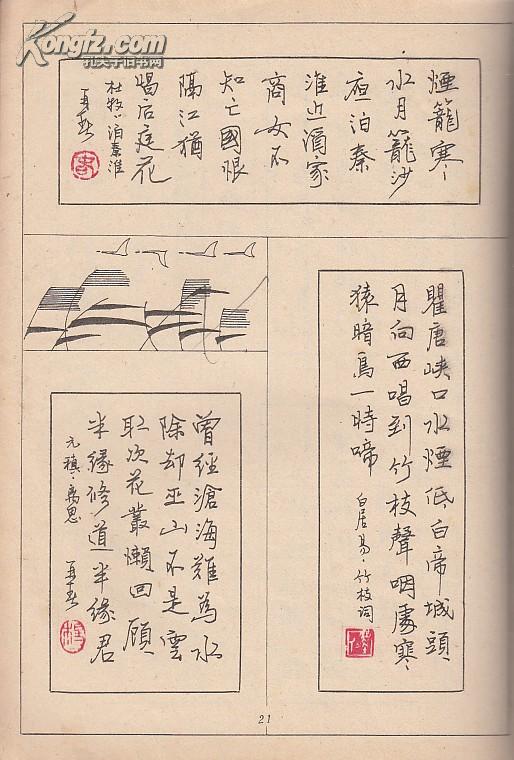 Kongfz.com
孔夫子旧书网
煙籠寒
水月籠沙
夜泊秦
淮近酒家
商女不
知亡國恨
隔江猶
唱后庭花
杜牧·泊秦淮
瞿唐峽口水煙低白帝城頭
月向西唱到竹枝聲咽處寒
猿暗鳥一時啼
白居易·竹枝词
曾經滄海難為水
除却巫山不是雲
取次花叢懶回顧
半緣修道半緣君
元稹·离思
21